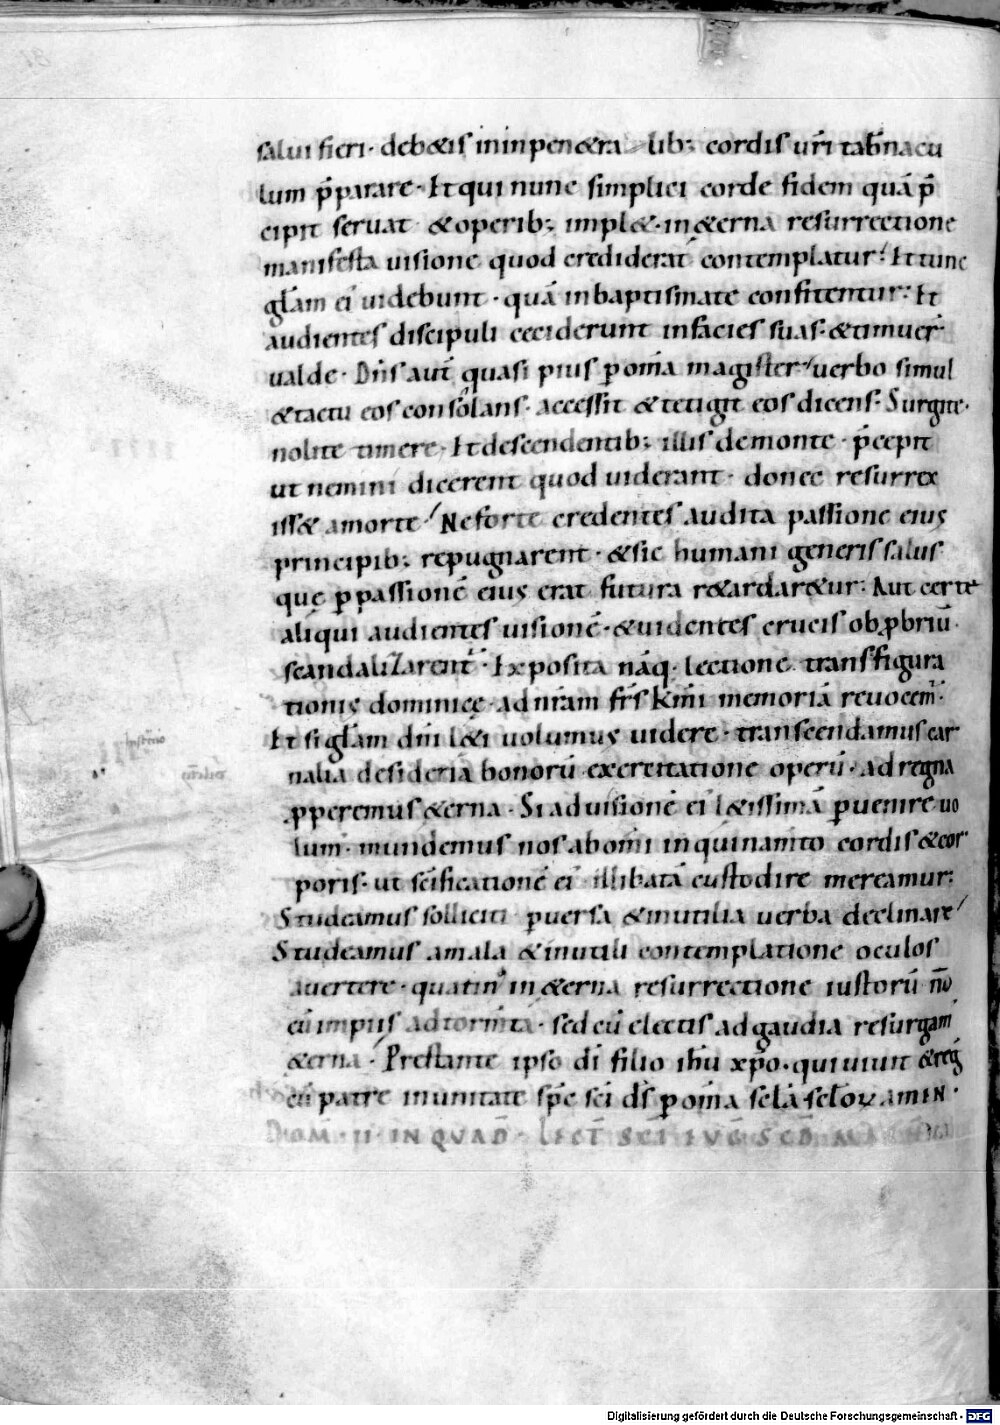 salui fieri· deb&is in inpen&ra lib; cordis ur̄i tab̄nacu
lum p̄parare· Et qui nunc simplici corde fidem quā p̄
cipit seruat &operib; impl&· in &erna resurrectione
manifesta uisione quod crediderat contemplatur: Et tunc
gl̄am eī uidebunt· quā in baptismate confitentur: Et
audientes discipuli ceciderunt in facies suas· &timuer̄
ualde· Dn̄s aut̄ quasi pius p̱ om̄ia magister uerbo simul
&tactu eos consolans· accessit &tetigit eos dicens· Surgite·
nolite timere· Et descendentib; illis de monte· p̄cepit
ut nemini dicerent quod uiderant· donec resurrex
iss& a morte Ne forte credentes audita passione eius
principib; repugnarent· &sic humani generis salus
quę p̱ passionē eius erat futura r&ardar&ur: Aut certe
aliqui audientes uisionē· &uidentes crucis obp̱briū·
scandalizarent· Exposita nāq· lectione transfigura
tionis dominicę· ad nr̄am fr̄s km̄i memoriā reuocem·
Et si gl̄am dn̄i l&i uolumus uidere· transcendamus car
nalia desideria bonorū exercitatione operū· ad regna
p̱peremus &erna· Si ad uisionē eī l&issimā p̱uenire uo
lum· mundemus nos ab om̄i inquinam̄to cordis &cor
poris· ut sc̄ificationē eī illibatā custodire mereamur:
Studeamus solliciti p̱uersa &inutilia uerba declinare
Studeamus a mala &inutili contemplatione oculos
auertere· quatin' in &erna resurrectione iustorū nō
cū impiis ad torm̄ta· sed cū electis ad gaudia resurgam̄
&erna· Prestante ipso dī filio ih̄u xp̄o· qui uiuit &reg̅
cū patre in unitate sp̄c sc̄i d̄s p̱ om̄ia sc̄la sc̄lou amen·
DOM̄· II· IN QUAD̄· LECT̄ SC̄I EUḠ SCD̄ MA
Digitalisierung gefördert durch die Deutsche Forschungsgemeinschaft - DFG